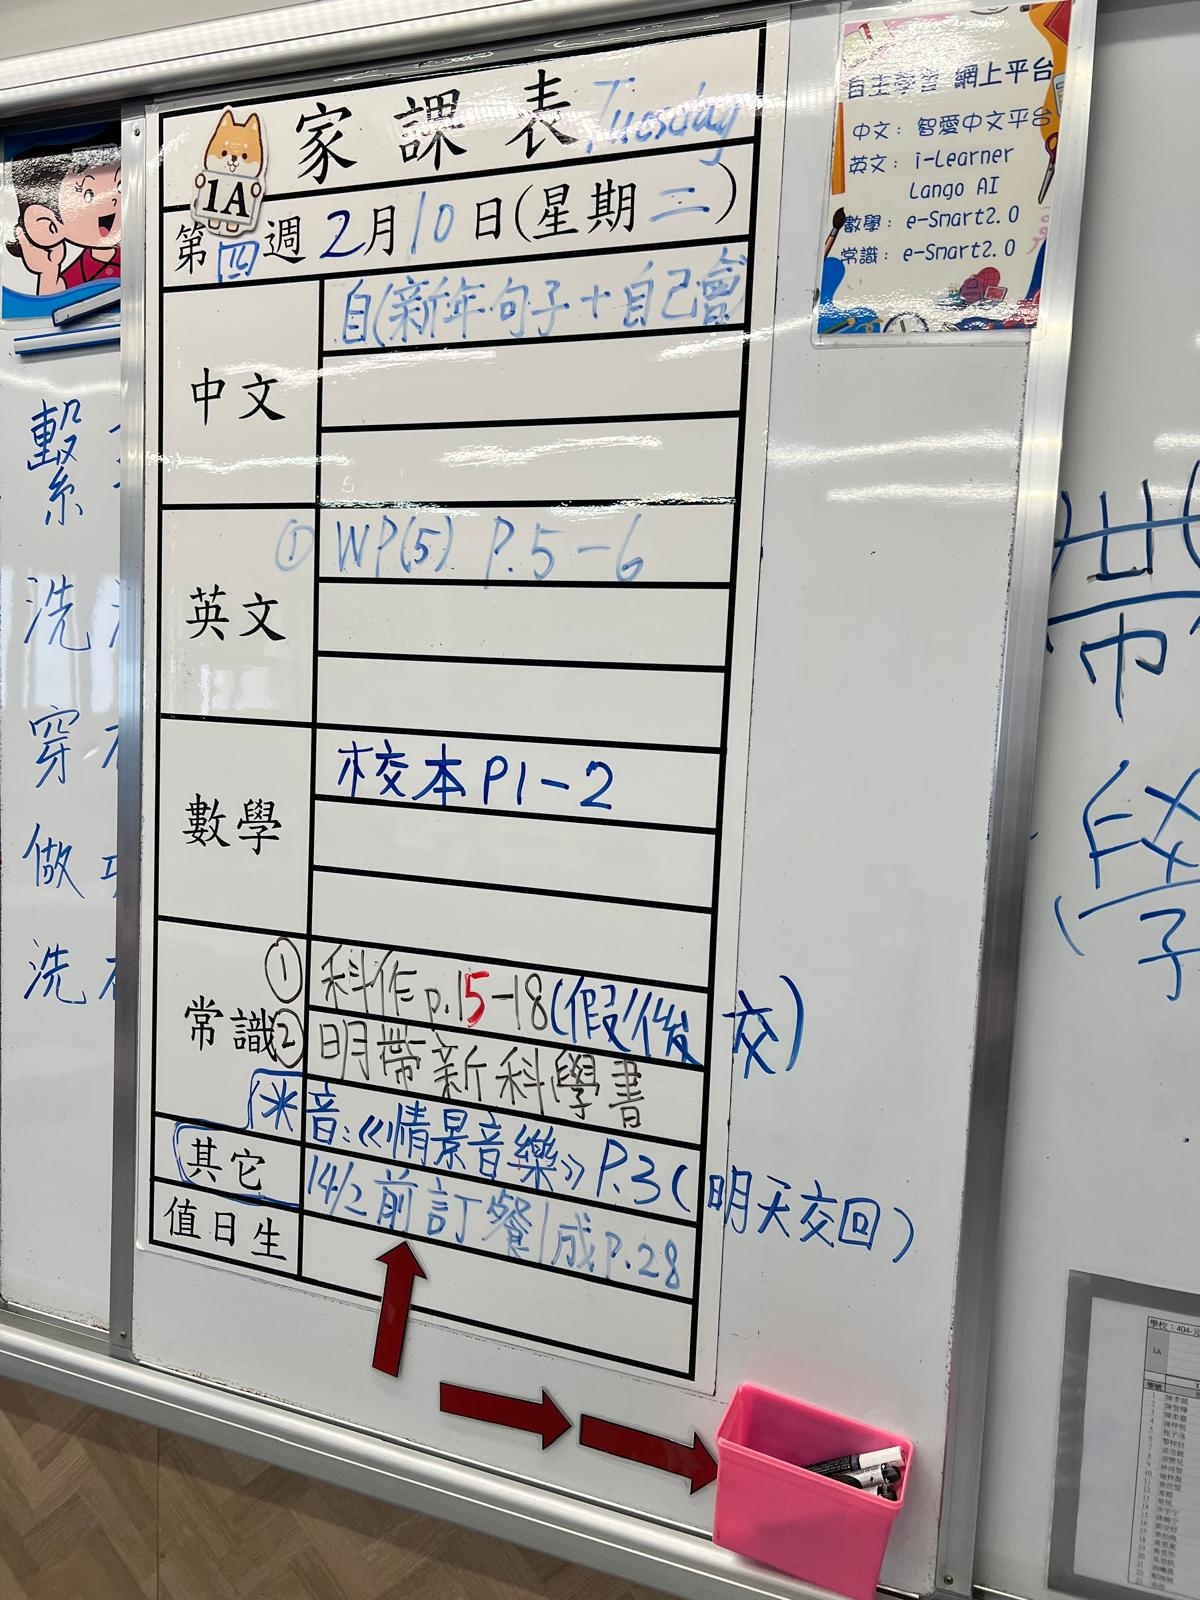 家課表 Tuesday
1A
第四週 2月10日(星期二)
中文
自(新年句子+自己會
英文
① WP(5) P.5-6
數學
校本P1-2
常識
① 科作p.15-18(假後交)
② 明帶新科學書
其它
*音:《情景音樂》P.3(明天交回)
14/2前訂餐/成P.28
值日生
自主學習 網上平台
中文: 智愛中文平台
英文: i-Learner
Lango AI
數學: e-Smart2.0
常識: e-Smart2.0
繫
洗
穿
做
洗
帶
學
1A